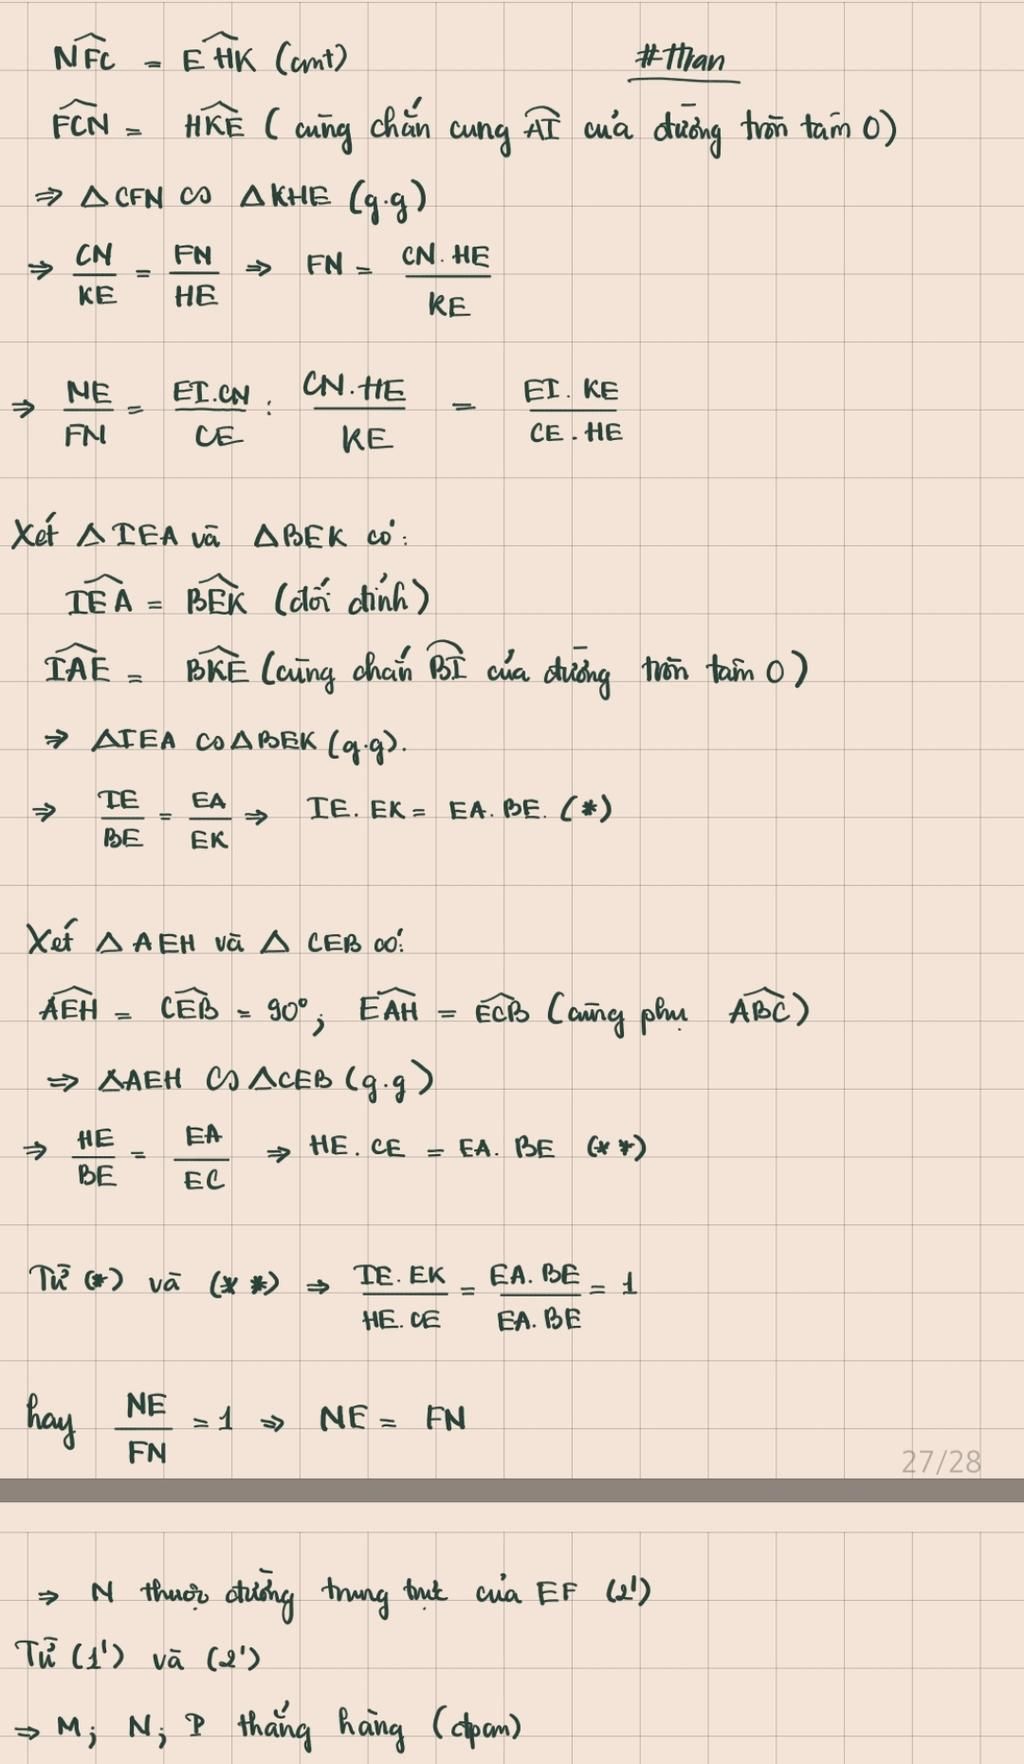 NFC = EHK (cmt) #Han
FCN = HKE ( cùng chắn cung AI của đường tròn tâm O)
⇒ △CFN ∽ △KHE (g.g)
⇒ CN/KE = FN/HE ⇒ FN = CN.HE/KE
⇒ NE/FN = EI.CN/CE : CN.HE/KE = EI.KE/CE.HE
Xét △IEA và △BEK có:
IEA = BEK (đối đỉnh)
IAE = BKE (cùng chắn BI của đường tròn tâm O)
⇒ △IEA ∽ △BEK (g.g).
⇒ IE/BE = EA/EK ⇒ IE.EK = EA.BE. (*)
Xét △AEH và △CEB có:
AEH = CEB = 90°; EAH = ECB (cùng phụ ABC)
⇒ △AEH ∽ △CEB (g.g)
⇒ HE/BE = EA/EC ⇒ HE.CE = EA.BE (**)
Từ (*) và (**) ⇒ IE.EK/HE.CE = EA.BE/EA.BE = 1
hay NE/FN = 1 ⇒ NE = FN
27/28
⇒ N thuộc đường trung trực của EF (2')
Từ (1') và (2')
⇒ M; N; P thẳng hàng (đpcm)